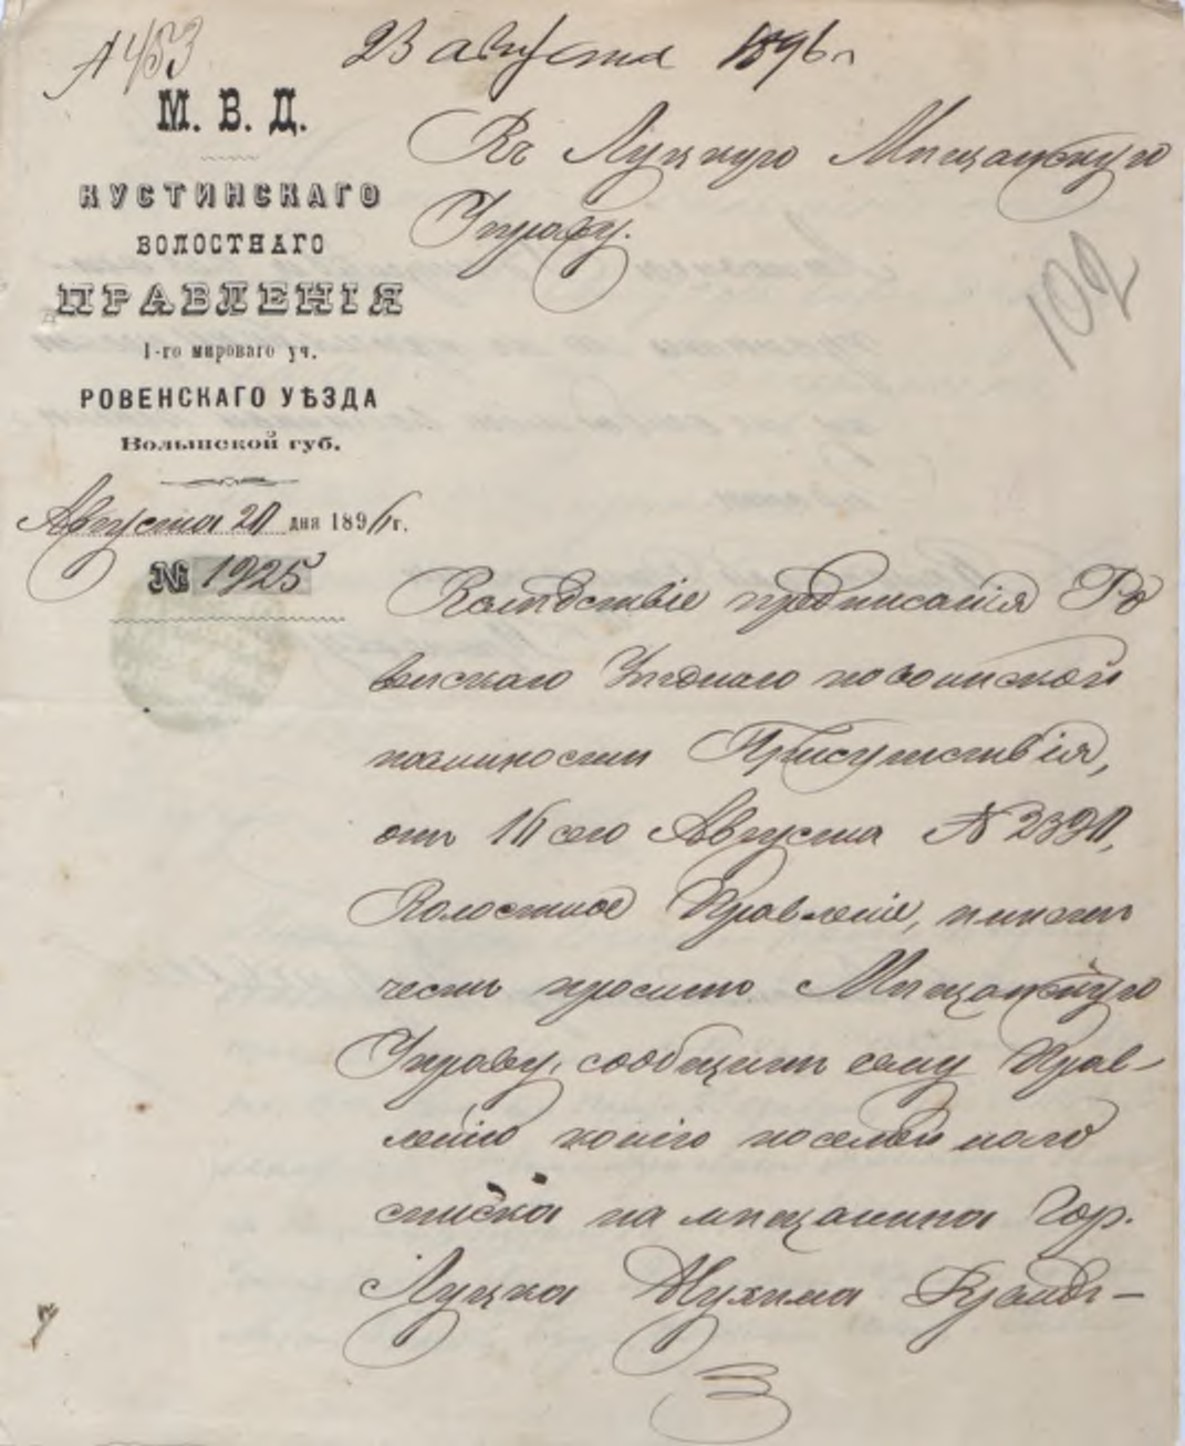 А 453
23 августа 1896 г
М. В. Д.
КУСТИНСКАГО
ВОЛОСТНАГО
ПРАВЛЕНІЯ
1-го мироваго уч.
РОВЕНСКАГО УѢЗДА
Волынской губ.
Августа 20 дня 1896 г.
№ 1925
Въ Луцкую Мѣщанскую
Управу.
102
Вслѣдствіе предписанія Ро
венскаго Уѣзднаго по воинской
повинности Присутствія,
отъ сего Августа №
Волостное Правленіе, имѣетъ
честь просить Мѣщанскую
Управу, сообщить сему Прав-
ленію копію посемейнаго
списка на мѣщанина Гор.
Луцка